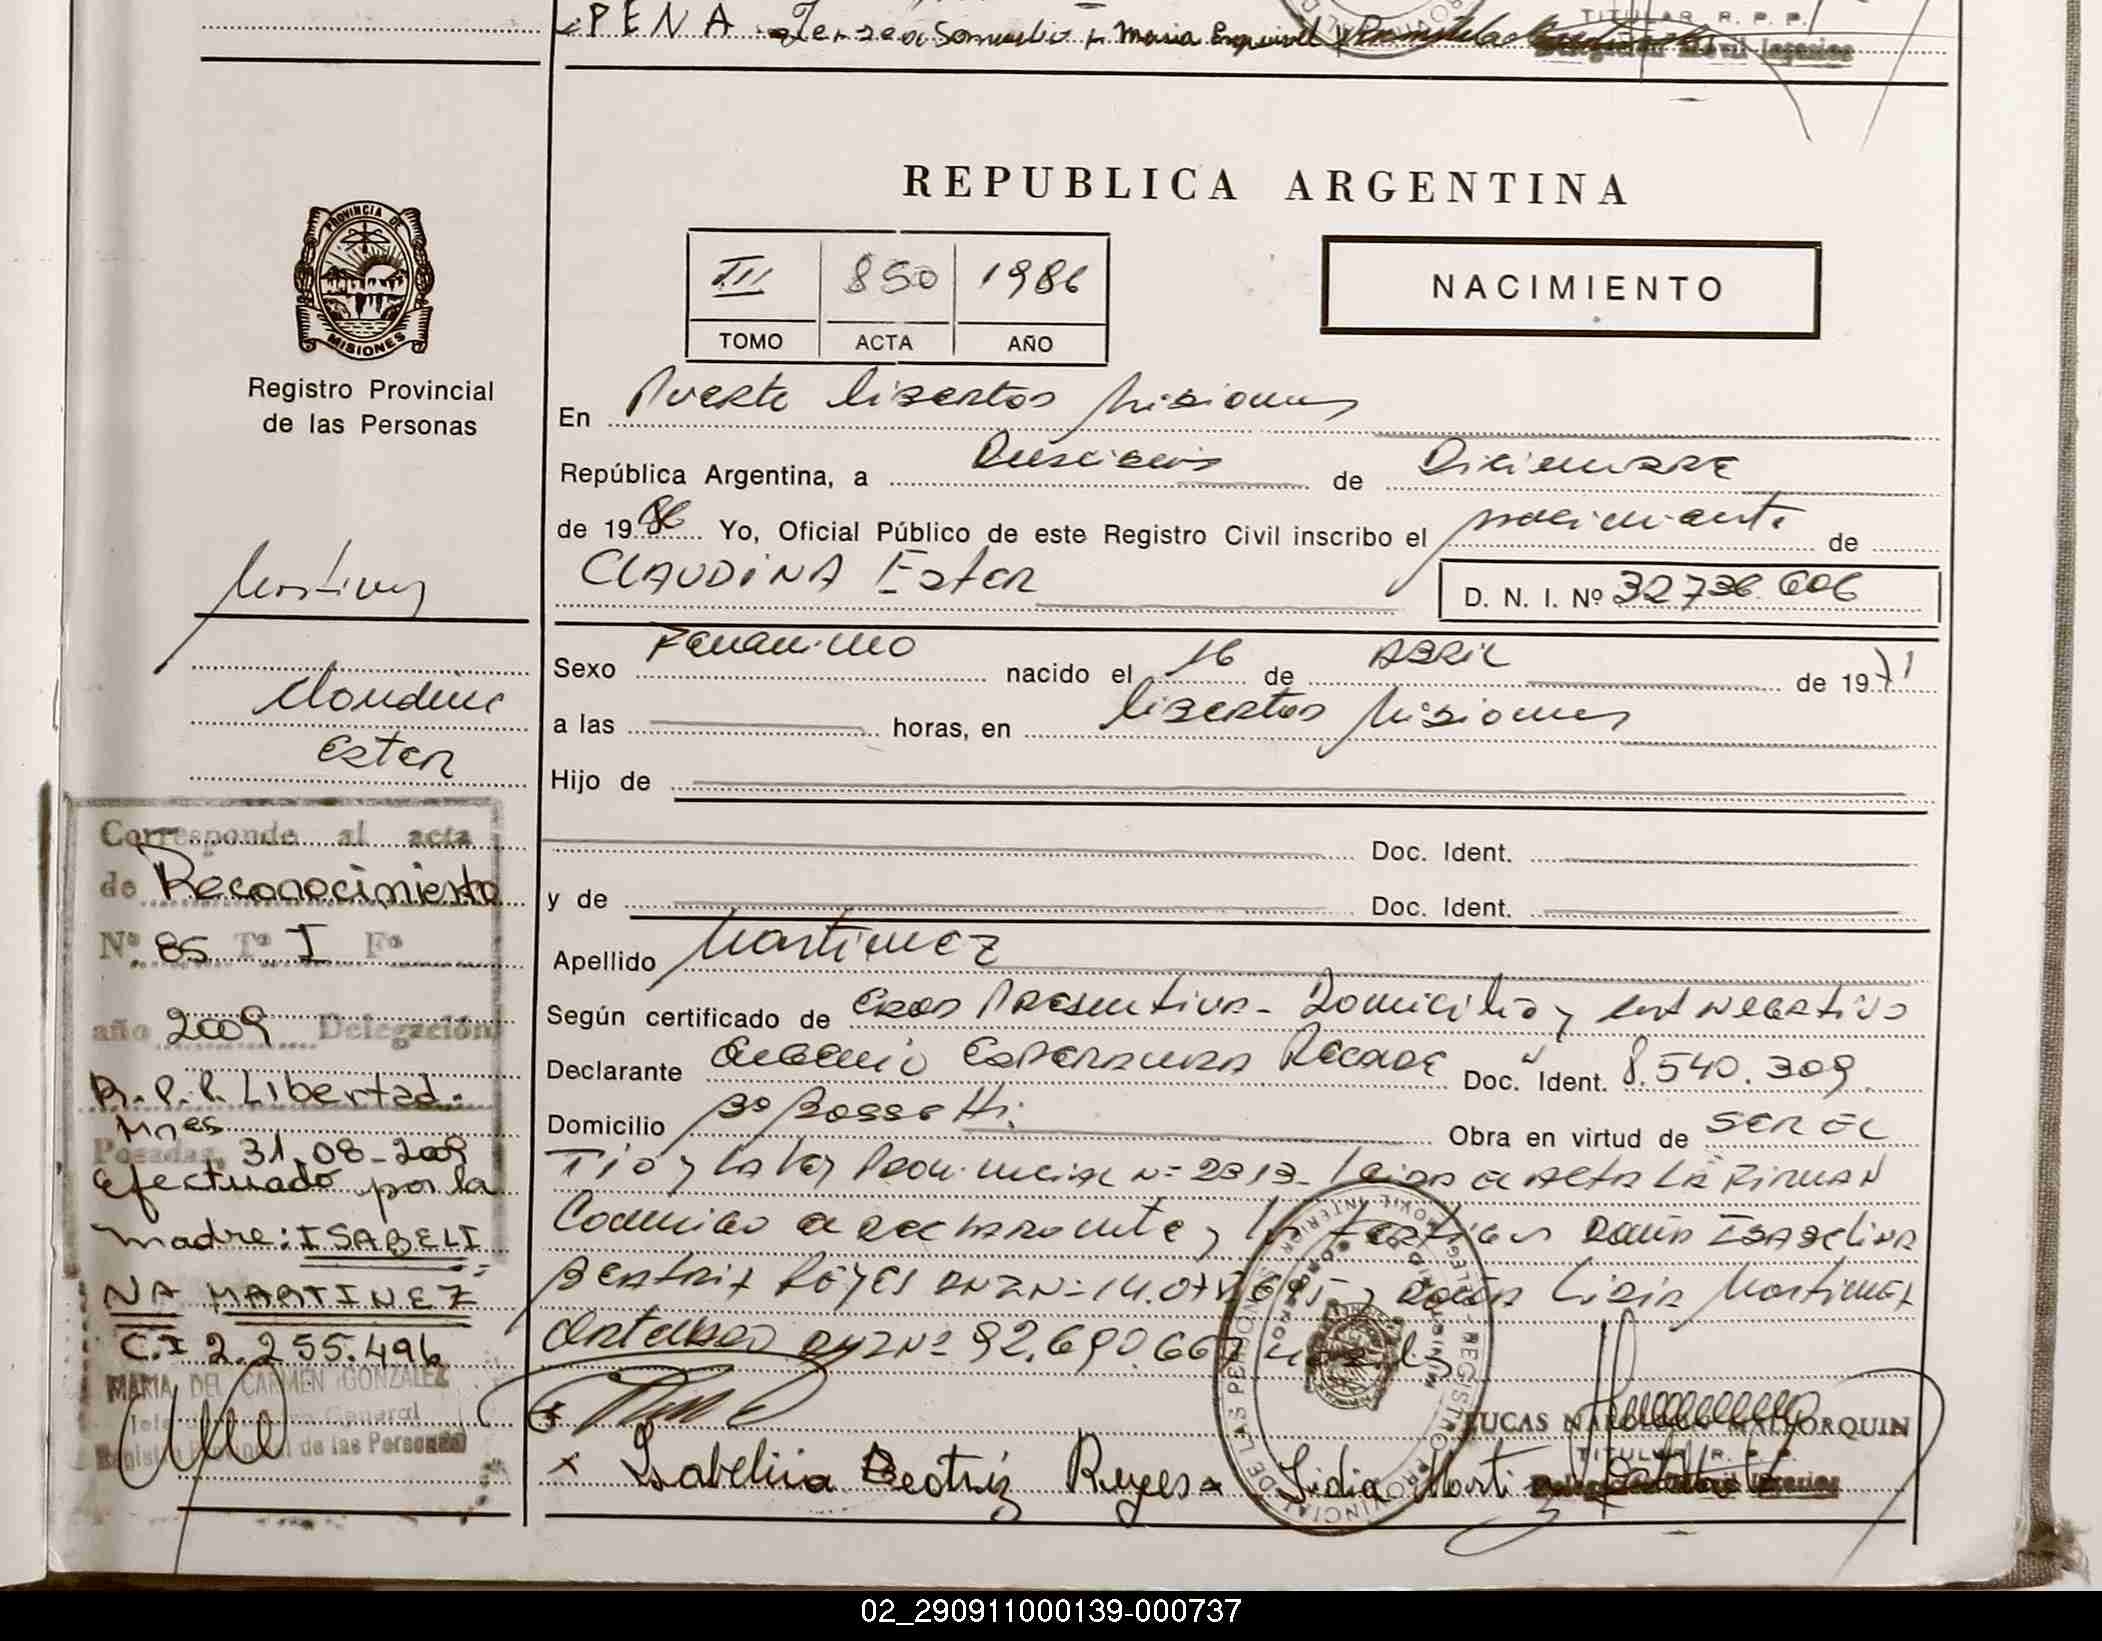 PENA
TITULAR R. P. P.
REPUBLICA ARGENTINA
NACIMIENTO
III 850 1986
TOMO ACTA AÑO
PROVINCIA DE
MISIONES
Registro Provincial
de las Personas
En Puerto Libertad Misiones
República Argentina, a Dieciseis de Diciembre
de 1986 Yo, Oficial Público de este Registro Civil inscribo el nacimiento de
CLAUDINA Ester
D. N. I. Nº 32.736.606
Sexo Femenino nacido el 16 de ABRIL de 1971
a las horas, en Libertad Misiones
Hijo de
Doc. Ident.
y de Doc. Ident.
Apellido Martinez
Según certificado de Edad Presuntiva - Domicilio y Neogativo
Declarante Eugenio Esperanza Doc. Ident. 8.540.309
Domicilio Bº Bossetti Obra en virtud de SER EL
TIO y la Ley Provincial Nº 2313 - Leida el Acta LA FIRMAN
Conmigo el declarante y los testigos Doña ISABELINA
Beatriz REYES DNI Nº 14. y Doña Lidia Martinez
DNI Nº 92.690.667
LUCAS NAPOLEON MALHORQUIN
TITULAR R. P. P.
Delegación Móvil Interior
x Isabelina Beatriz Reyes x Lidia Marti
Martinez
Claudina
Ester
Corresponde al acta
de Reconocimiento
Nº 85 Tº I Fº
año 2009 Delegación
R.P.P. Libertad.
Mnes
Posadas, 31-08-2009
Efectuado por la
Madre: ISABELI
NA MARTINEZ
C.I 2.255.496
MARIA DEL CARMEN GONZALEZ
General
Registro Provincial de las Personas
02_290911000139-000737